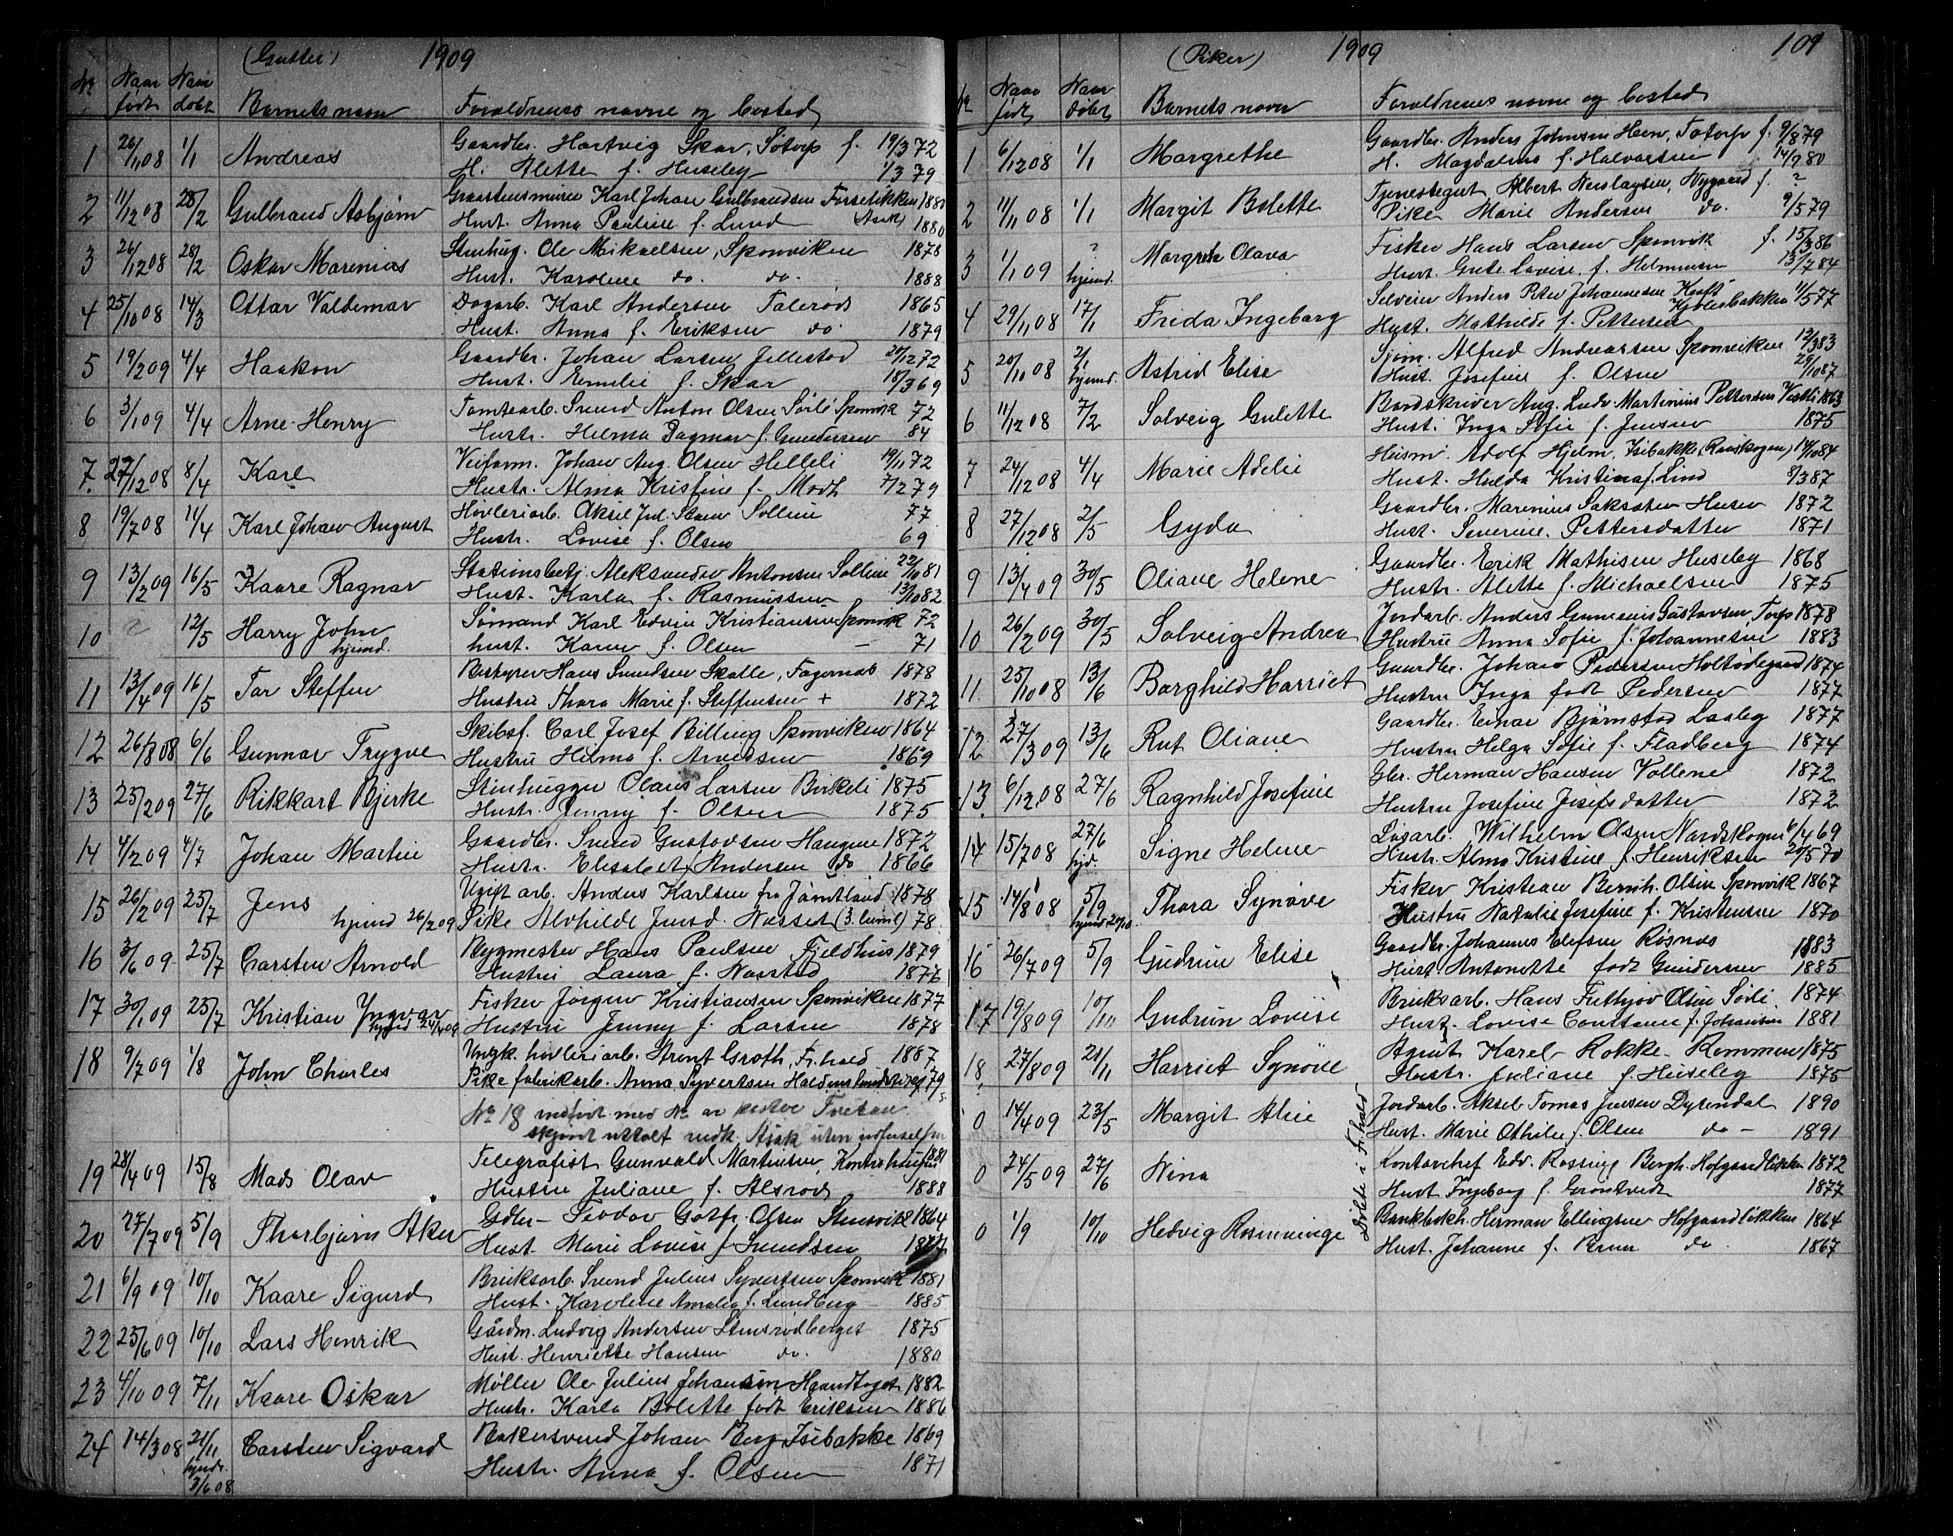 (Gutter) 1909
Nr Naar født Naar døbt Barnets navn Foræld­renes navne og bosted
1 26/11 08 1/1 Andreas Gaardbr. Hartvig Skar, Torp f. 19/3 72
H. Alette f. Huseby 1/3 79
2 11/12 08 28/2 Gulbrand Asbjørn Karl Johan Gulbrandsen 1880
Hust. Anna Pauline f. Lund (Asak) 1880
3 26/12 08 28/2 Oskar Marenius Stenhug. Ole Mikaelsen, Sponviken 1878
Hust. Karoline do. do. 1888
4 25/10 08 14/3 Ottar Valdemar Dagarb. Karl Andersen 1865
Hust. Anna f. Eriksen do. 1879
5 19/2 09 4/4 Haakon Gaardbr. Johan Larsen Jellestad 72
Hust. Emilie f. Skar 18/3 69
6 3/1 09 4/4 Arne Henry Tomtearb. Svend Anton Olsen Sørli Sponvik 72
Hustr. Helma Dagmar f. Gundersen 84
7 27/12 08 8/4 Karl Veiform. Johan Aug. Olsen Helleli 19/11 72
Hustr. Alma Kristine f. Moth 79
8 19/7 08 11/4 Karl Johan August Høvleriarb. Aksel Sollien 77
Hustr. Lovise f. Olsen 69
9 13/2 09 16/5 Kaare Ragnar Stationsbetj. Aleksander Antonsen Sollien 22/10 81
Hust. Karla f. Rasmussen 13/10 82
10 ? 12/5 Harry John Sømand Karl Edvin Kristiansen Sponvik 72
hjemd. hust. Karen f. Olsen — 71
11 13/4 09 16/5 Tor Steffen Bestyrer Hans Svendsen Skolle, Fagernæs 1878
Hustru Thora Marie f. Steffensen + 1872
12 26/8 08 6/6 Gunnar Trygve Skibsf. Carl Josef Billing Sponviken 1864
Hustru Helma f. Arvessen 1869
13 25/2 09 27/6 Rikkart Bjerke Stenhugger Olaus Larsen Birkeli 1875
Hustr. Jenny f. Olsen 1875
14 4/2 09 4/7 Johan Martin Gaardbr. Svend Gustavsen Haugene 1872
Hustr. Elisabet Andersen do 1866
15 26/2 09 25/7 Jens Ugift arb. Anders Karlsen fra Jämtland 1878
hjemd 26/2 09 Pike Alvhilde Jensd. Næsset (3. barn) 78
16 3/6 09 25/7 Carsten Arnold Bygmester Hans Paulsen Fjeldhus 1879
Hustru Laura f. Næsstad 1877
17 30/1 09 25/7 Kristian Yngvar Fisker Jørgen Kristiansen Sponviken 1877
hjemd 24/4 09 Hustru Jenny f. Larsen 1878
18 9/7 09 1/8 John Charles Ungk. høvleriarb. Groth, Fr.hald 1887
Pike fabrikarb. Anna Syvertsen 79
No 18 indført med Nr av pastor
skjønt uttalt
19 28/4 09 15/8 Mads Olav Telegrafist Gunvald Martinsen 1881
Hustru Juliane f. Alsrød 1888
20 27/7 09 5/9 Thorbjørn Aker Gdbr— Teodor Gotfr. Olsen 1864
Hust. Marie Lovise f. Svendsen
21 6/9 09 10/10 Kaare Sigurd Bruksarb. Svend Julius Syvertsen Sponvik 1881
Hust. Karoline Amalie f. Lundberg — 1885
22 25/6 09 10/10 Lars Henrik Gårdm. Ludvig Andersen Stensrødberget 1875
Hust. Henriette Hansen do. 1880
23 4/10 09 7/11 Kaare Oskar Møller Ole Julius Johansen 1882
Hustr. Karla Bolette født Eriksen 1886
24 14/3 08 21/11 Carsten Sigvard Bakersvend Johan Berg, Isebakke 1869
hjemd. 3/6 08 Hustr. Anna f. Olsen 1871
(Piker) 1909 109
Nr Naar født Naar døbt Barnets navn Forældrenes navne og bosted
1 6/12 08 1/1 Margrethe Gaardbr. Anders Johnsen Hem, f. 9/8 79
H. Magdalene f. Halvorsen 14/9 80
2 11/11 08 1/1 Margit Bolette Tjenestegut Albert Nygaard f. ?
Pike Marie Andersen do. 9/5 79
3 1/1 09 ? hjemd. Margreth Olava Fisker Hans Larsen Sponvik f. 15/3 86
Hust. Gute Lovise f. Helmersen 13/7 84
4 29/11 08 17/1 Frida Ingeborg Anders Peter Johannesen 11/5 77
Hust. Mathilde f. Pettersen
5 20/10 08 2/1 hjemd. Astrid Elise Sjøm. Alfred Andreassen Sponviken 12/3 83
Hust. Josefine f. Olsen 29/10 87
6 11/12 08 7/2 Solveig Gulette Aug. Ludv. Martinius Pettersen 1863
Hust. Inga Sofie f. Jensen 1875
7 24/12 08 4/4 Marie Adele Adolf Hjelm, Isebakke 14/10 84
Hust. Hulda Kristina f. Lind 8/3 87
8 27/12 08 2/5 Gyda Gaardbr. Marinius 1872
Hust. Severine Pettersdatter 1871
9 13/4 09 30/5 Oliane Helene Gaardbr. Erik Mathisen Huseby 1868
Hustr. Alette f. Michaelsen 1875
10 26/2 09 30/5 Solveig Andrea Jordarb. Anders Gunerius Gustavsen, Torp 1878
Hustru Anna Sofie f. Johannesen 1883
11 25/10 08 13/6 Borghild Harriet Gaardbr. Johan Pedersen Holtødegaard 1874
Hustru Inga født Pedersen 1877
12 27/3 09 13/6 Rut Oliane Gaardbr. Einar Bjørnstad Laaby 1877
Hustru Helga Sofie f. Fladberg 1874
13 6/12 08 27/6 Ragnhild Josefine Gbr. Herman Hansen Vollene 1872
Hustru Josefine Josefsdatter 1872
14 15/7 08 27/6 hjd. Signe Helene Løsarb. Wilhelm Olsen 6/4 69
Hustr. Alma Kristine f. Henriksen 20/5 70
15 14/8 08 5/9 Thora Synøve Fisker Kristian Bernh. Olsen Sponvik 1867
Hustru Natalie Josefine f. Kristensen 1870
16 26/7 09 5/9 Gudrun Elise Gaardbr. Johannes Elefsen Røsnæs 1883
Hust. Antonette født Gundersen 1885
17 19/8 09 10/10 Gudrun Lovise Bruksarb. Hans Frithjov Olsen Sørli 1874
Hust. Lovise Constance f. Johansen 1881
18 27/8 09 21/11 Harriet Synøve Agent Karel Rokke — Remmen 1875
Hustr. Juliane f. Huseby 1875
Døbte i Fr.hald
0 14/4 09 23/5 Margit Alice Jordarb. Aksel Tomas Jensen Dyrendal 1890
Hust. Marie Othilie f. Olsen do — 1891
0 24/5 09 27/6 Nina Kontorchef Edv. Rossing Bergh. Hofgaardløkken 1872
Hust. Ingeborg f. Grøntvedt 1877
0 1/9 10/10 Hedvig Rosenvinge Bankbokh. Herman Ellingsen Hofgaardløkken 1864
Hust. Johanne f. Brun do. 1867